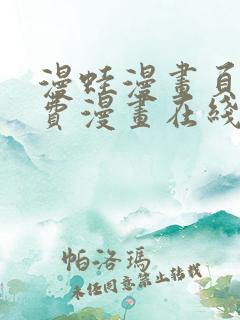 漫蛙漫畫頁
費漫畫在綫
帕洛瑪
未经同意禁止转载